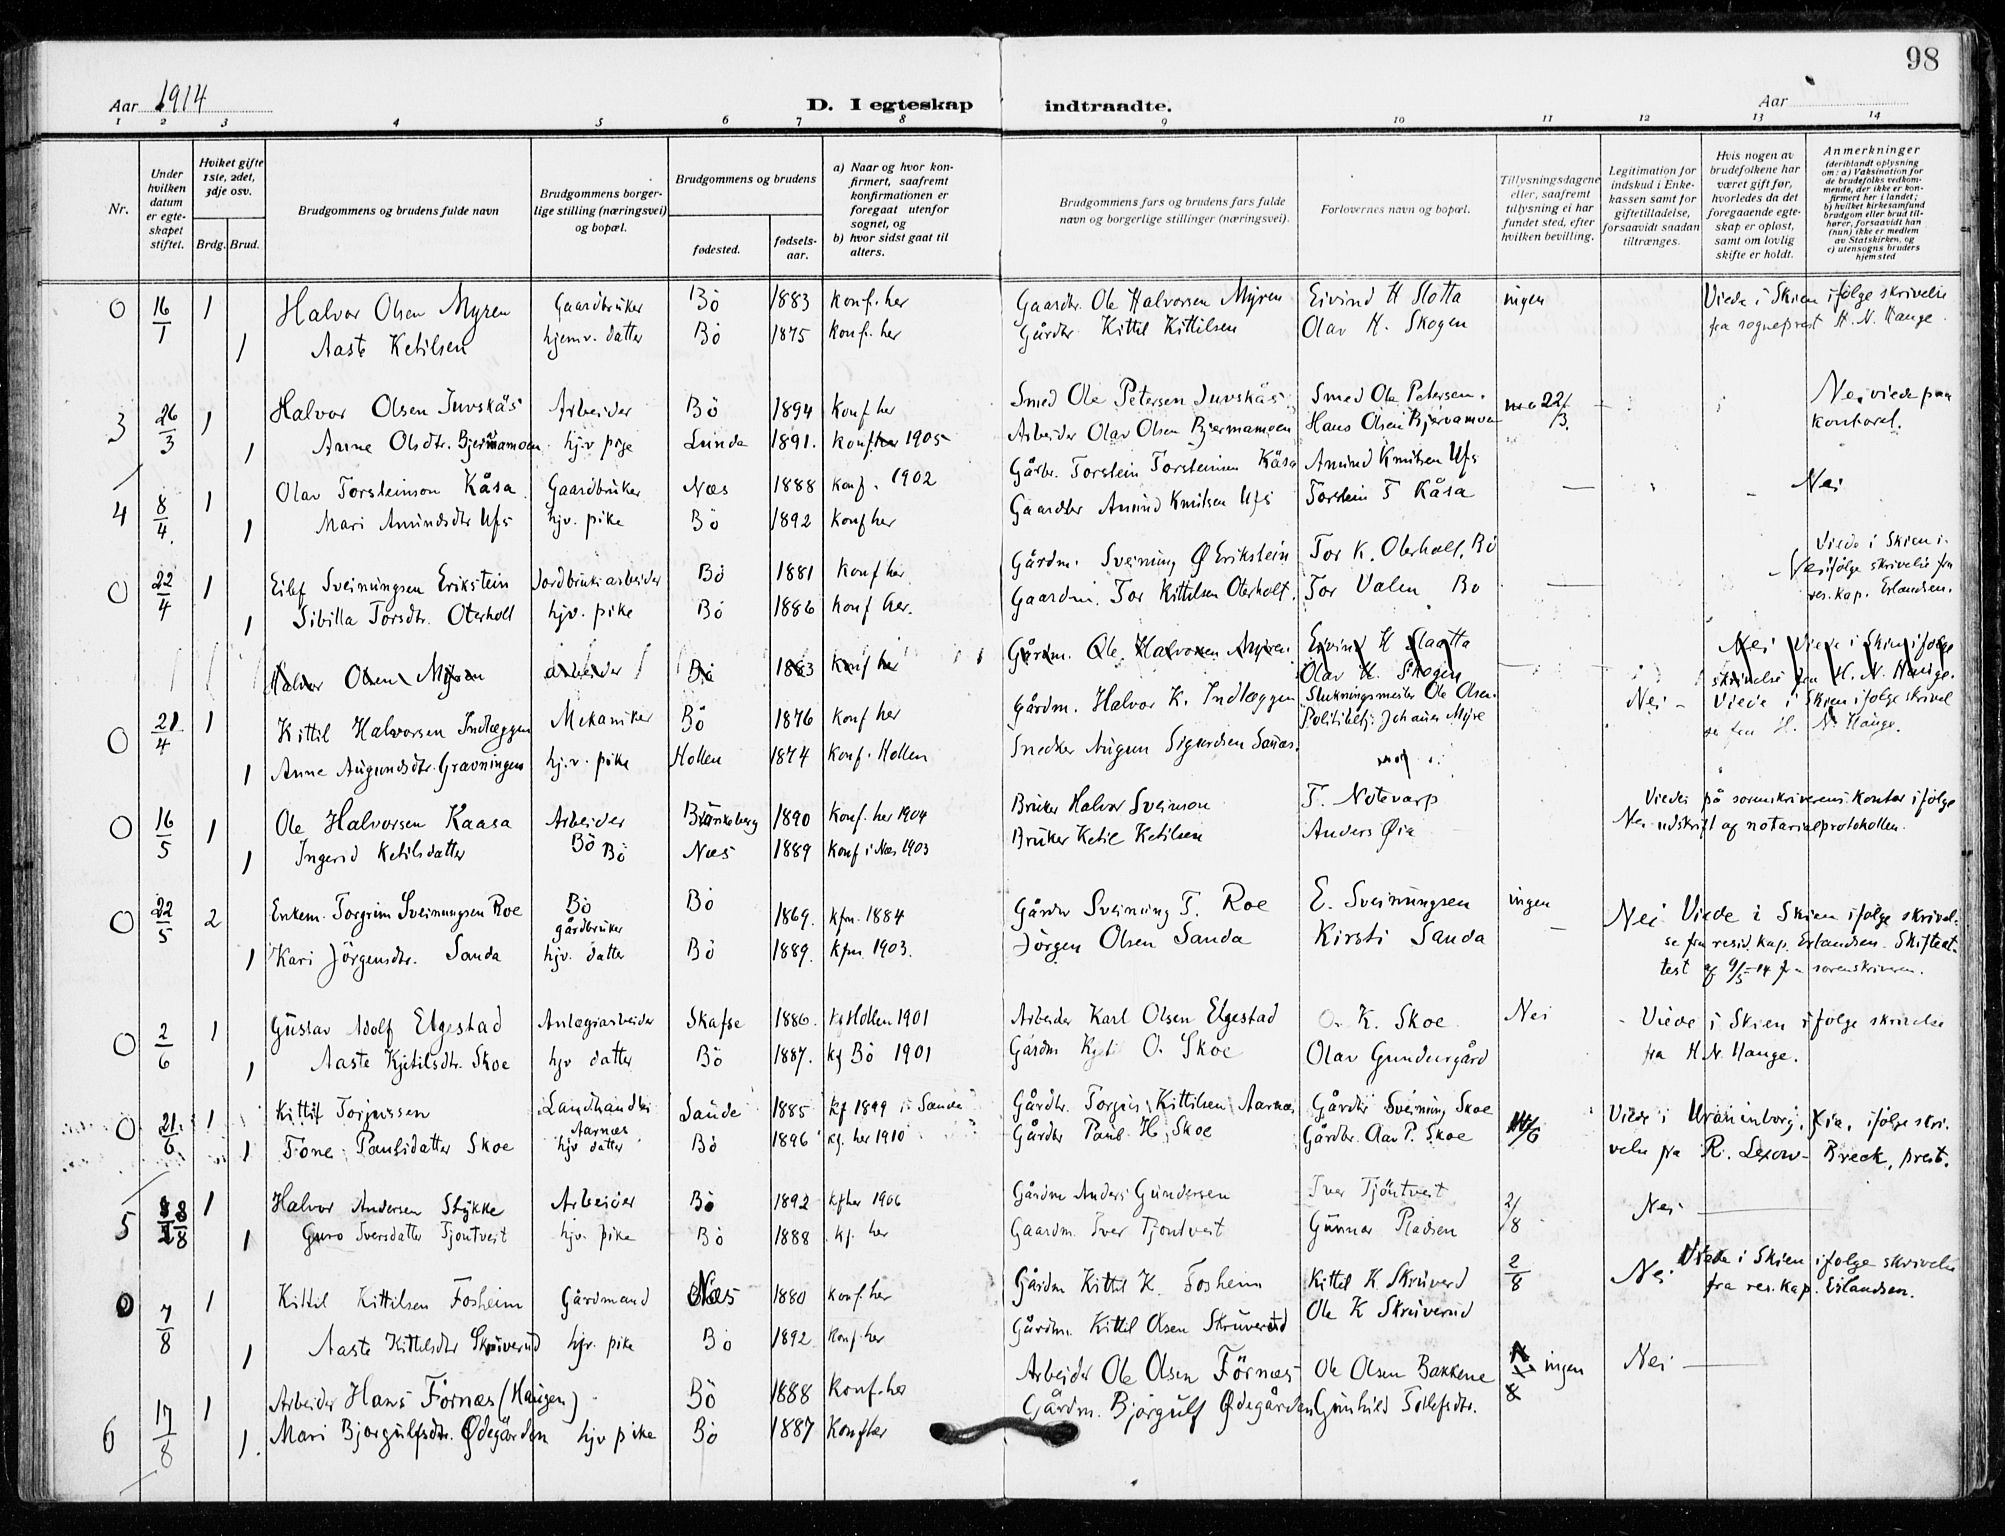 98
Aar 1914
D. I egteskap indtraadte.
Aar
1 2 3 4 5 6 7 8 9 10 11 12 13 14
Nr.
Under hvilken datum er egteskapet stiftet.
Hviket gifte 1ste, 2det, 3dje osv.
Brdg. Brud.
Brudgommens og brudens fulde navn
Brudgommens borgerlige stilling (næringsvei) og bopæl.
Brudgommens og brudens
fødested.
fødselsaar.
a) Naar og hvor konfirmert, saafremt konfirmationen er foregaat utenfor sognet, og
b) hvor sidst gaat til alters.
Brudgommens fars og brudens fars fulde navn og borgerlige stillinger (næringsvei).
Forlovernes navn og bopæl.
Tillysningsdagene eller, saafremt tillysning ei har fundet sted, efter hvilken bevilling.
Legitimation for indskud i Enkekassen samt for giftetilladelse, forsaavidt saadan tiltrænges.
Hvis nogen av brudefolkene har været gift før, hvorledes da det foregaaende egteskap er opløst, samt om lovlig skifte er holdt.
Anmerkninger
(deriblandt oplysning om: a) Vaksination for de brudefolks vedkommende, der ikke er konfirmert her i landet; b) hvilket kirkesamfund brudgom eller brud tilhører, forsaavidt han (hun) ikke er medlem av Statskirken, og c) utensogns bruders hjemsted
0 16/1 1 Halvor Olsen Myren Gaardbruker Bö 1883 konf. her Gaardbr. Ole Halvorsen Myren Eivind H Slotta ingen Viede i Skien ifølge skrivelse
1 Aaste Ketilsen hjemv. datter Bö 1875 konf. her Gårdbr. Kittil Kittilsen Olav H. Skogen fra sogneprest H. N. Hauge.
3 26/3 1 Halvor Olsen Juvskås Arbeider Bö 1894 Konf her Smed Ole Petersen Juvskås Smed Ole Petersen. 22/3. Nei viede paa
1 Anne Olsdtr. Bjermamoen hjv pige Lunde 1891. konf her 1905 Arbeider Olav Olsen Bjermamoen Hans Olsen Bjervamoen kontoret.
4 8/4. 1 Olav Torsteinson Kåsa Gaardbruker Næs 1888 konf. 1902 Gårbr. Torstein Torsteinson Kåsa Amund Knutsen Ufs Nei
1 Mari Amundsdtr Ufs hjv. pike Bö 1892 konf her Gaardbr Amund Knutsen Ufs Torstein T Kåsa
0 22/4 1 Eilef Sveinungsen Erikstein Jordbruksarbeider Bö 1881 konf her Gårdm. Sveinung Ø Erikstein Tor K. Oterholt, Bö Nei Viede i Skien i-
følge skrivelse fra
1 Sibilla Torsdtr. Oterholt hjv. pike Bö 1886 konf her. Gaardm. Tor Kittilsen Oterholt. Tor Valen Bo res. kap. Erlandsen.
Halvor Olsen Myren arbeider Bö 1883 konf her Gårdm. Ole Halvorsen Myren Eivind H Slaatta Nei Viede i Skien ifølge
Olav H. Skogen skrivelse fra H. N. Hauge.
0 21/4 1 Kittil Halvorsen Indlæggen Mekaniker Bö 1876 konf her Gårdm. Halvor K. Indlæggen Ole Olsen. Nei - Viede i Skien ifølge skrivel
Politibetj. Johannes Myre se fra H. N. Hauge.
1 Anne Augundsdtr. Gravningen hj.v. pike Hollen 1874 konf. Hollen Snedker Augun Sigurdsen
0 16/5 1 Ole Halvorsen Kaasa Arbeider Bö Brunkeberg 1890 Konf. her 1904 Bruker Halvor Sveinson T. Notevarp Viedes på sorenskriverens kontor ifølge
1 Ingerid Ketilsdatter Bö Næs 1889 konf i Næs 1903 Bruker Ketil Ketilsen Anders Øia Nei udskrift af notarialprotokollen.
0 22/5 2 Enkem. Torgrim Sveinungsen Roe Bö gårdbruker Bö 1869. kfm. 1884 Gårdbr Sveinung T. Roe E. Sveinungsen ingen Nei Viede i Skien ifølge skrivel-
1 Kari Jörgensdtr. Sanda hjv. datter Bö 1889. kfm. 1903. Jörgen Olsen Sanda Kirsti Sanda se fra resid. kap. Erlandsen. Skifteat-
test af 9/5-14 f- sorenskriveren.
0 2/6 1 Gustav Adolf Elgestad Anlægsarbeider Skafse 1886. kf Hollen 1901 Arbeider Karl Olsen Elgestad O. K. Skoe Nei Viede i Skien ifølge skrivelse
1 Aaste Kjetilsdtr. Skoe hjv datter Bö 1887. kf Bö 1901 Gårdm Kjetil O. Skoe Olav Gundersgård fra H. N. Hauge.
0 21/6 1 Kittil Torjussen Landhandler Aarnæs Saude 1885 kf 1899 i Saude Gårdbr. Torgus Kittilsen Aarnæs Gårdbr Sveinung Skoe 14/6 Viede i Uranienborg, Kia, ifølge skri-
1 Tone Paulsdatter Skoe hjv datter Bö 1896 kf. her 1910 Gårdbr Paul H. Skoe Gårdbr. Aav P. Skoe velse fra R. Lexow- Breck, prest.
5 8/8 1 Halvor Andersen Stykke Arbeider Bö 1892 kf her 1906 Gårdm Anders Gundersen Iver Tjöntveit 2/8 Nei
1 Guro Iversdatter Tjontveit hjv. pike Bö 1888 kf. her Gaardm. Iver Tjontveit Gunnar Pladsen
0 7/8 1 Kittil Kittilsen Fosheim Gårdmand Næs 1880 konf. her Gårdm Kittil K. Fosheim Kittil K Skruverd 2/8 Nei Viede i Skien ifølge skrivelse
1 Aaste Kittilsdtr Skruverud hjv. pike Bö 1892. konf. her Gårdm. Kittil Olsen Skruverud Ole K Skruverud fra res. kap. Erlandsen.
6 17/8 1 Arbeider Hans Förnæs (Haugen) Bö 1888 Konf. her Arbeider Ole Olsen Förnæs Ole Olsen Bakkene ingen Nei
1. Mari Bjorgulfsdtr. Ødegården hjv pike Bö 1887 Konf her Gårdm. Bjorgulf Ødegården Gunhild Tollefsdtr.